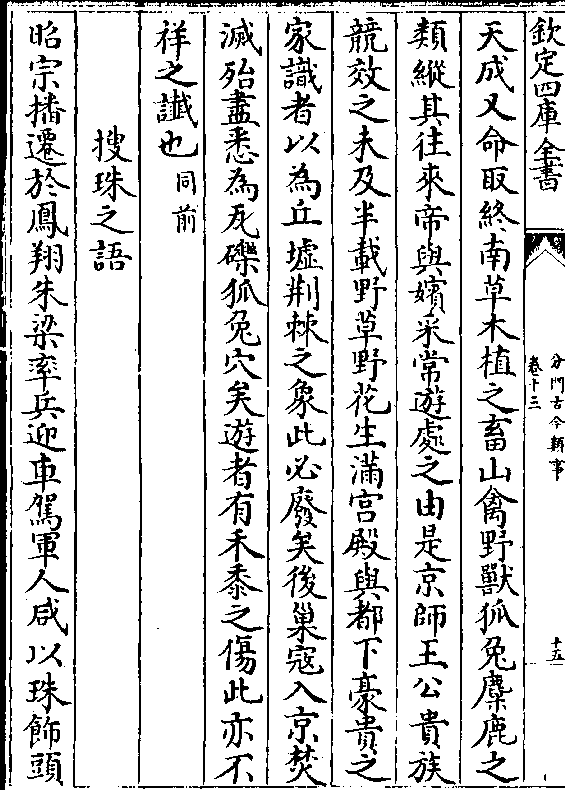 欽定四庫全書
分門古今類事
卷十三
十五
天成又命取終南草木植之畜山禽野獸狐兔麋鹿之
類縱其往來帝與嬪采常遊處之由是京師王公貴族
競效之未及半載野草野花生滿宮殿與都下豪貴之
家識者以為丘墟荆棘之象此必廢矣後巢寇入京焚
滅殆盡悉為瓦礫狐兔穴矣遊者有禾黍之傷此亦不
祥之讖也同前
搜珠之語
昭宗播遷於鳳翔朱梁率兵迎車駕軍人咸以珠飾頭